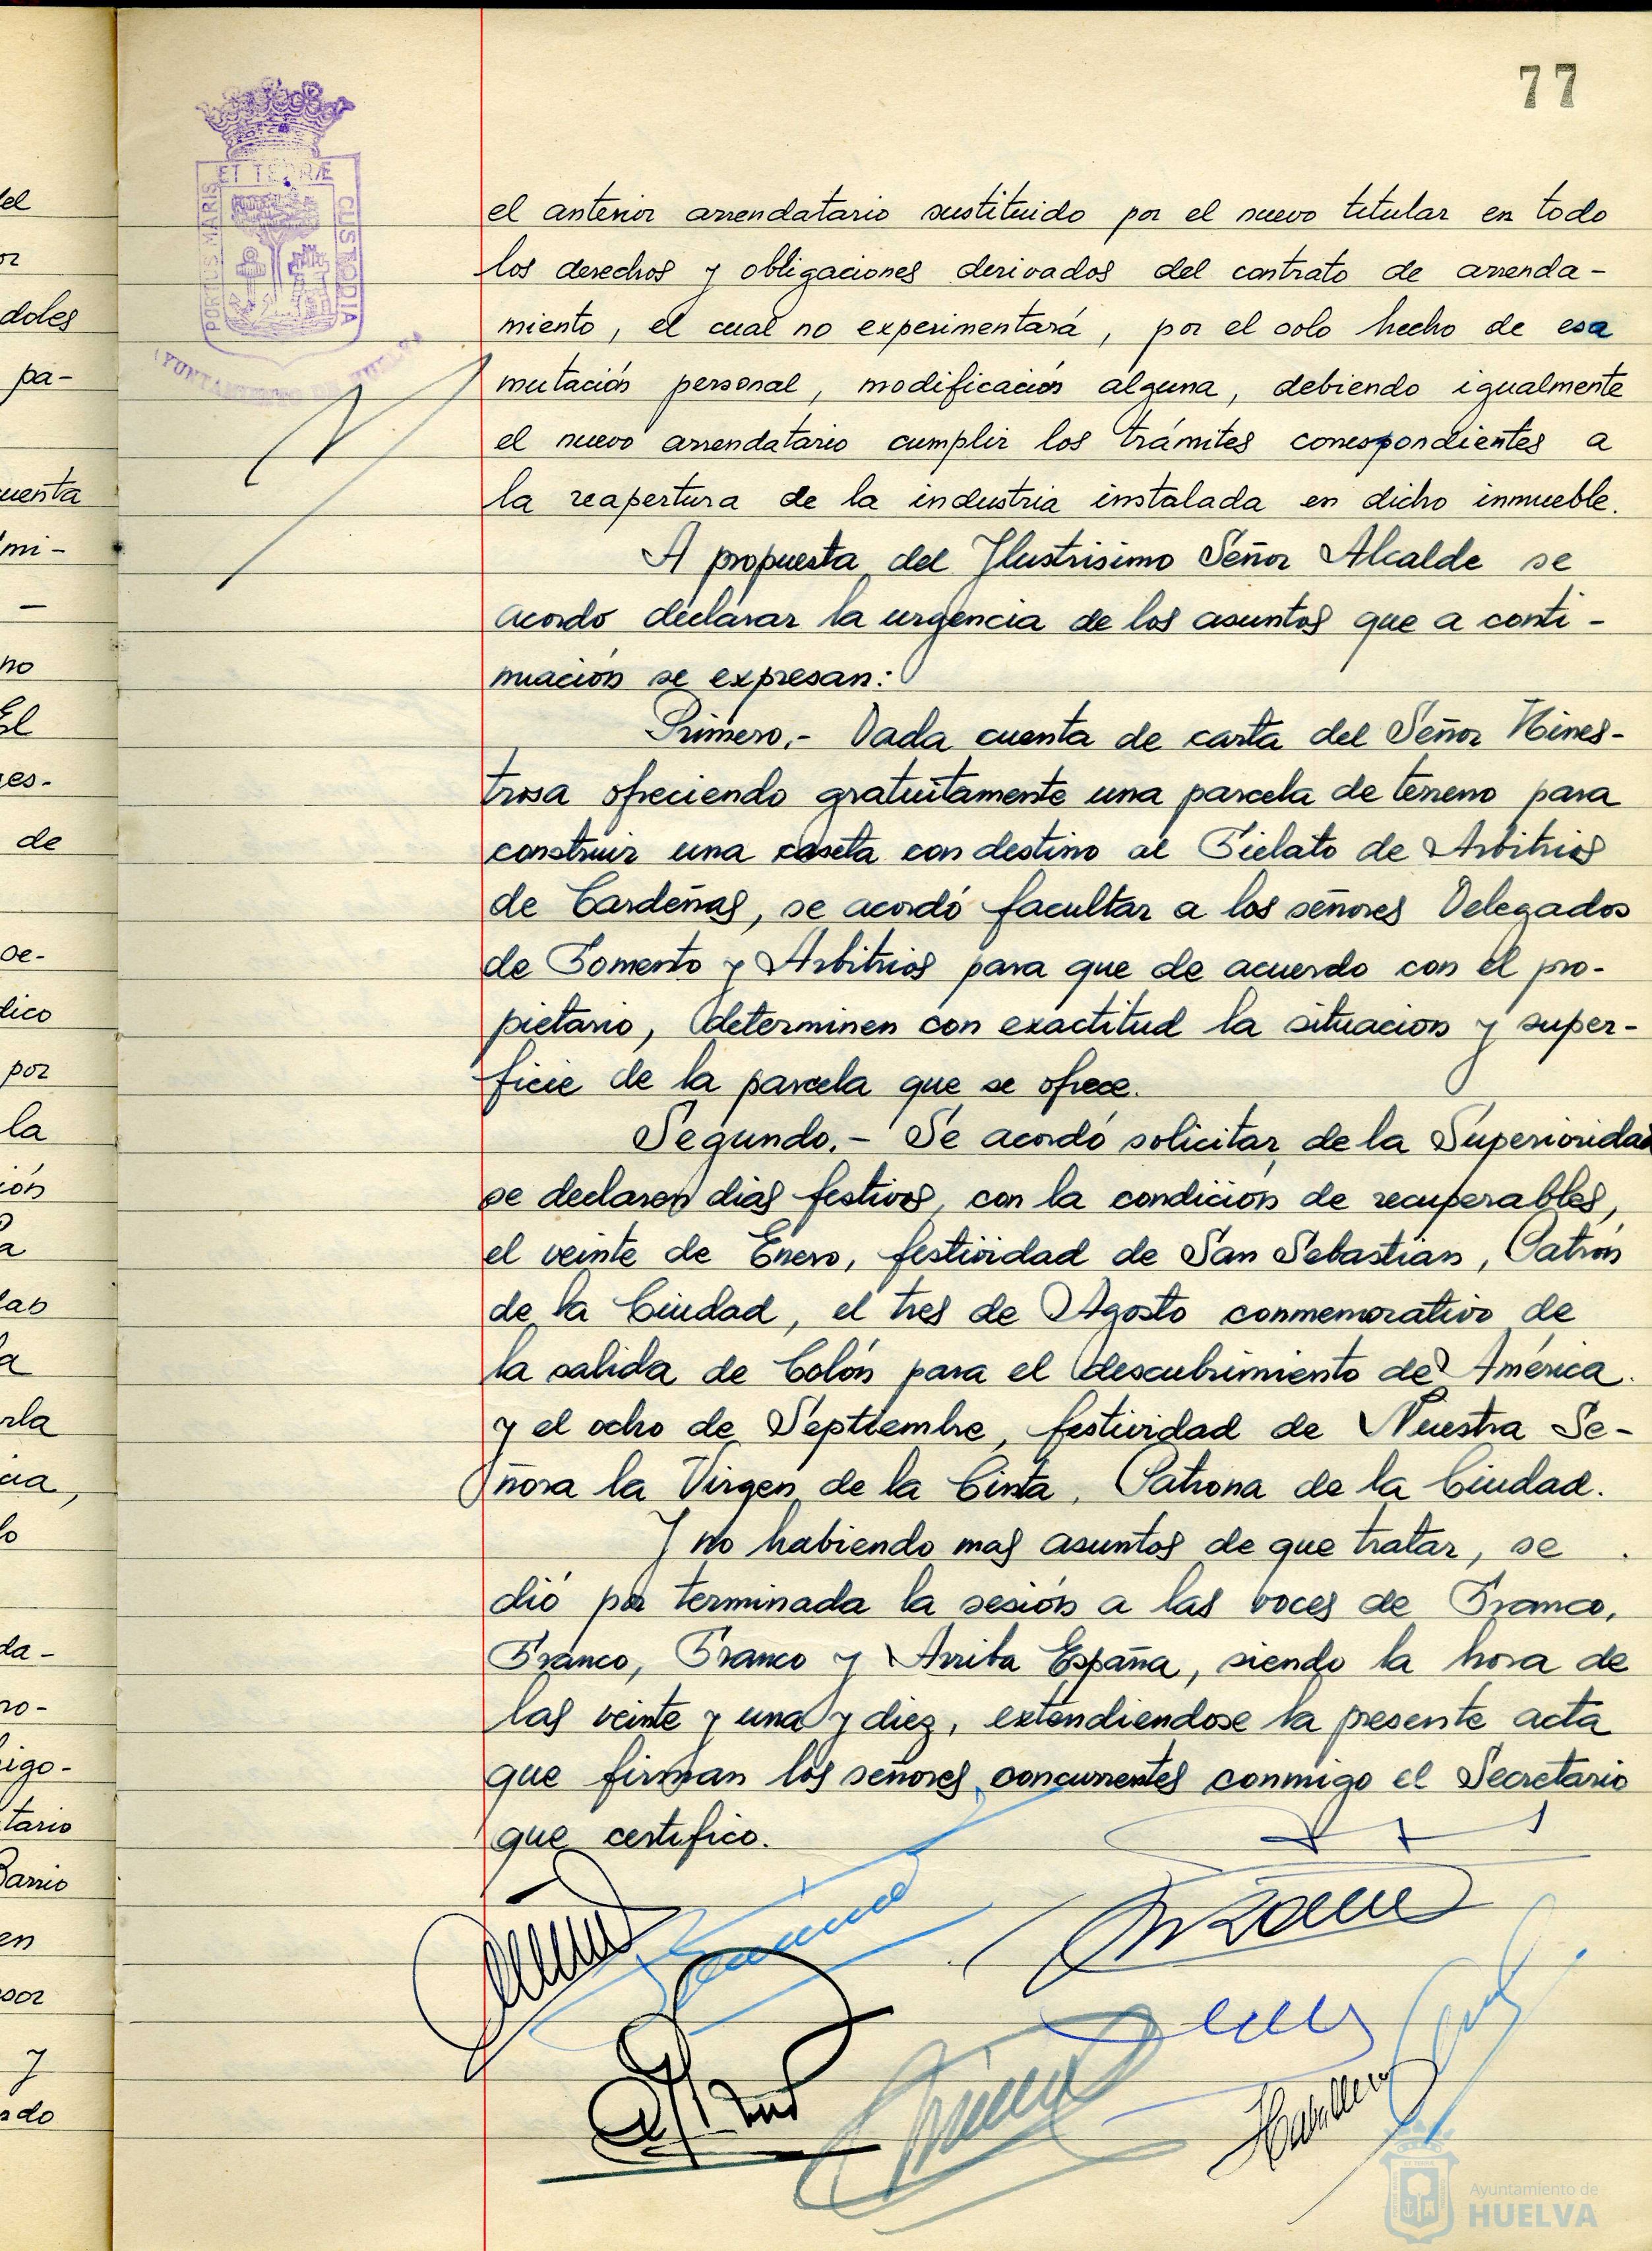 77
ET TERRÆ
PORTUS MARIS
CUSTODIA
AYUNTAMIENTO DE HUELVA
el anterior arrendatario sustituido por el nuevo titular en todo
los derechos y obligaciones derivados del contrato de arrenda-
miento, el cual no experimentará, por el solo hecho de esa
mutación personal, modificación alguna, debiendo igualmente
el nuevo arrendatario cumplir los trámites correspondientes a
la reapertura de la industria instalada en dicho inmueble.
A propuesta del Ilustrisimo Señor Alcalde se
acordo declarar la urgencia de los asuntos que a conti-
nuación se expresan:
Primero.- Dada cuenta de carta del Señor Hines-
trosa ofreciendo gratuitamente una parcela de terreno para
construir una caseta con destino al Fielato de Arbitrios
de Cardeñas, se acordó facultar a los señores Delegados
de Fomento y Arbitrios para que de acuerdo con el pro-
pietario, determinen con exactitud la situación y super-
ficie de la parcela que se ofrece.
Segundo.- Se acordó solicitar de la Superioridad
se declaren dias festivos, con la condición de recuperables,
el veinte de Enero, festividad de San Sebastián, Patrón
de la Ciudad, el tres de Agosto conmemorativo de
la salida de Colón para el descubrimiento de America.
y el ocho de Septiembre, festividad de Nuestra Se-
ñora la Virgen de la Cinta, Patrona de la Ciudad.
Y no habiendo mas asuntos de que tratar, se
dió por terminada la sesión a las voces de Franco,
Franco, Franco y Arriba España, siendo la hora de
las veinte y una y diez, extendiendose la presente acta
que firman los señores concurrentes conmigo el Secretario
que certifico.
Ayuntamiento de
HUELVA